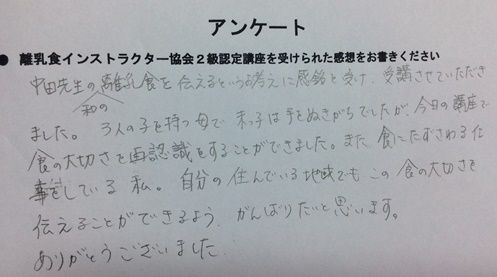 アンケート
● 離乳食インストラクター協会2級認定講座を受けられた感想をお書きください
中田先生の和の離乳食を伝えるという考えに感銘を受け、受講させていただき
ました。3人の子を持つ母で末子は手をぬきがちでしたが、今日の講座で
食の大切さを再認識をすることができました。また食にたずさわる仕
事をしている私。自分の住んでいる地域でもこの食の大切さを
伝えることができるよう、がんばりたいと思います。
ありがとうございました。